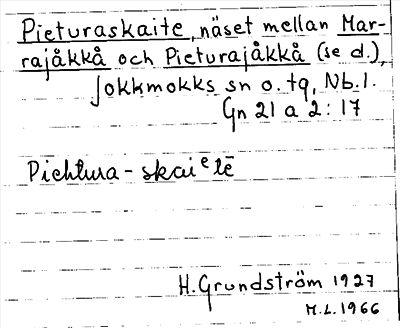 Pieturaskaite, näset mellan Mar-
rajåkkå och Pieturajåkkå (se d.),
Jokkmokks sn o. tg, Nb.l.
Gn 21 a 2:17
Piehtura-skaiᵉtē
H. Grundström 1927
M.L. 1966